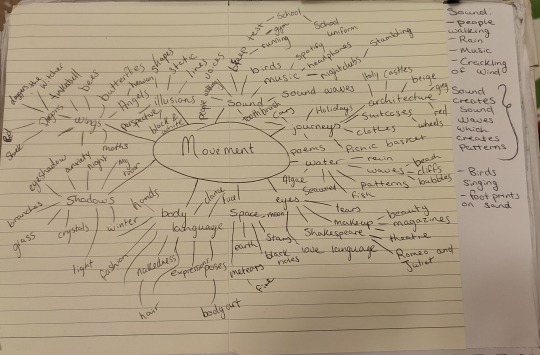 Movement
Sound
people walking
cars
voices
beep test
School
gym
running
School uniform
birds
music
spotify
headphones
nightclubs
stumbling
Sound waves
journeys
Holidays
Holy castles
architecture
beige
grey
suitcases
red
wheels
clothes
poems
Picnic basket
water
rain
waves
beach
cliffs
patterns
bubbles
fish
Seaweed
Algae
eyes
tears
makeup
beauty
magazines
Shakespeare
theatre
love language
Romeo and Juliet
Space
moon
Stars
black holes
earth
meteors
fire
dance
fuel
body
language
expression
poses
body art
nakedness
hair
fashion
Shadows
hands
winter
crystals
light
glass
branches
eyeshadow
anxiety
night
my room
wings
moths
bees
butterflies
Angels
heaven
illusions
perspective
black & white
shapes
static
lines
Sound:
- people
walking
- Rain
- Music
- Crackling
of wind
Sound
creates
Sound
Waves
which
creates
Patterns
- Birds
Singing
- footprints
on sand